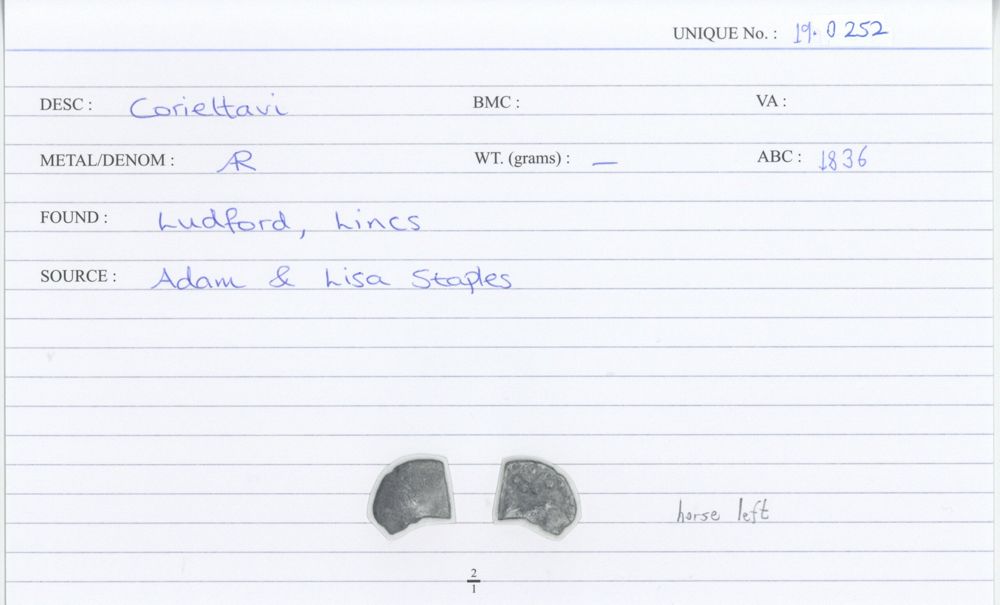 UNIQUE No. : 19. 0252
DESC : Corieltavi BMC : VA :
METAL/DENOM : AR WT. (grams) : — ABC : 1836
FOUND : Ludford, Lincs
SOURCE : Adam & Lisa Staples
horse left
2
1